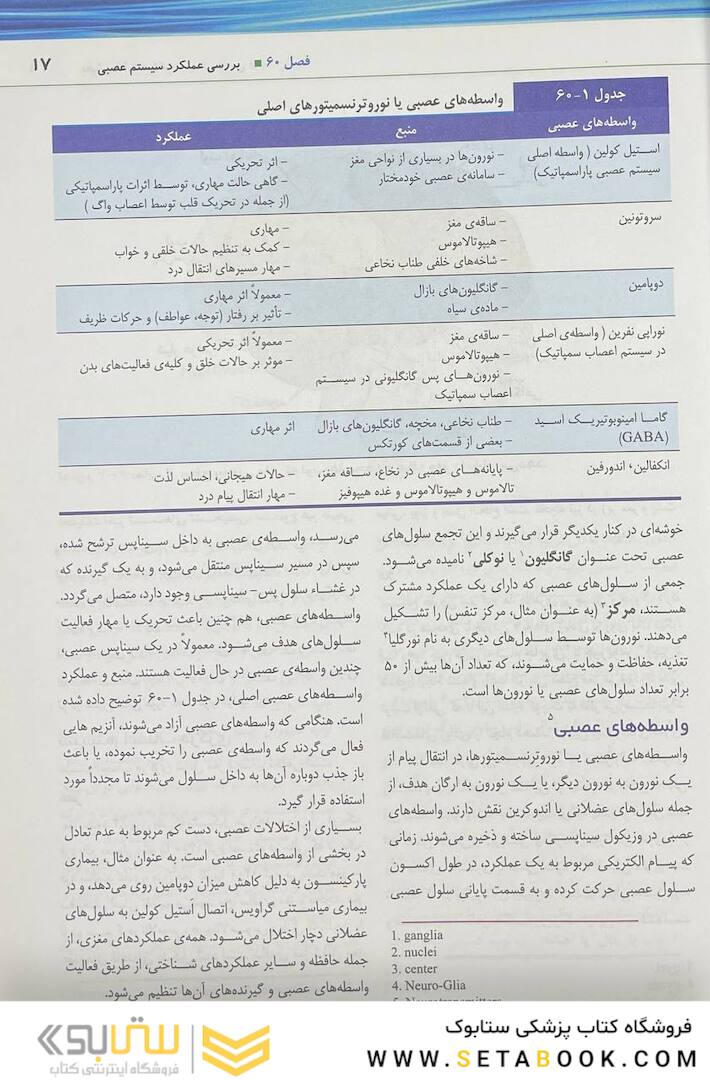 فصل ۶۰ ■ بررسی عملکرد سیستم عصبی ۱۷
جدول ۱-۶۰ واسطه‌های عصبی یا نوروترنسمیتورهای اصلی
واسطه‌های عصبی منبع عملکرد
استیل کولین (واسطه اصلی
سیستم عصبی پاراسمپاتیک)
- نورون‌ها در بسیاری از نواحی مغز
- سامانه‌ی عصبی خودمختار
- اثر تحریکی
- گاهی حالت مهاری، توسط اثرات پاراسمپاتیکی
(از جمله در تحریک قلب توسط اعصاب واگ)
سروتونین
- ساقه‌ی مغز
- هیپوتالاموس
- شاخه‌های خلفی طناب نخاعی
- مهاری
- کمک به تنظیم حالات خلقی و خواب
- مهار مسیرهای انتقال درد
دوپامین
- گانگلیون‌های بازال
- ماده‌ی سیاه
- معمولاً اثر مهاری
- تأثیر بر رفتار (توجه، عواطف) و حرکات ظریف
نوراپی نفرین (واسطه‌ی اصلی
در سیستم اعصاب سمپاتیک)
- ساقه‌ی مغز
- هیپوتالاموس
- نورون‌های پس گانگلیونی در سیستم
اعصاب سمپاتیک
- معمولاً اثر تحریکی
- موثر بر حالات خلق و کلیه‌ی فعالیت‌های بدن
گاما امینوبوتیریک اسید
(GABA)
- طناب نخاعی، مخچه، گانگلیون‌های بازال
- بعضی از قسمت‌های کورتکس
اثر مهاری
انکفالین، اندورفین
- پایانه‌های عصبی در نخاع، ساقه مغز،
تالاموس و هیپوتالاموس و غده هیپوفیز
- حالات هیجانی، احساس لذت
- مهار انتقال پیام درد
خوشه‌ای در کنار یکدیگر قرار می‌گیرند و این تجمع سلول‌های
عصبی تحت عنوان گانگلیون۱ یا نوکلی۲ نامیده می‌شود.
جمعی از سلول‌های عصبی که دارای یک عملکرد مشترک
هستند، مرکز۳ (به عنوان مثال، مرکز تنفس) را تشکیل
می‌دهند. نورون‌ها توسط سلول‌های دیگری به نام نورگلیا۴
تغذیه، حفاظت و حمایت می‌شوند، که تعداد آن‌ها بیش از ۵۰
برابر تعداد سلول‌های عصبی یا نورون‌ها است.
واسطه‌های عصبی۵
واسطه‌های عصبی یا نوروترنسمیتورها، در انتقال پیام از
یک نورون به نورون دیگر، یا یک نورون به ارگان هدف، از
جمله سلول‌های عضلانی یا اندوکرین نقش دارند. واسطه‌های
عصبی در وزیکول سیناپسی ساخته و ذخیره می‌شوند. زمانی
که پیام الکتریکی مربوط به یک عملکرد، در طول اکسون
سلول عصبی حرکت کرده و به قسمت پایانی سلول عصبی
1. ganglia
2. nuclei
3. center
4. Neuro-Glia
5. Neurotransmitters
می‌رسد، واسطه‌ی عصبی به داخل سیناپس ترشح شده،
سپس در مسیر سیناپس منتقل می‌شود، و به یک گیرنده که
در غشاء سلول پس- سیناپسی وجود دارد، متصل می‌گردد.
واسطه‌های عصبی، هم چنین باعث تحریک یا مهار فعالیت
سلول‌های هدف می‌شود. معمولاً در یک سیناپس عصبی،
چندین واسطه‌ی عصبی در حال فعالیت هستند. منبع و عملکرد
واسطه‌های عصبی اصلی، در جدول ۱-۶۰ توضیح داده شده
است. هنگامی که واسطه‌های عصبی آزاد می‌شوند، آنزیم هایی
فعال می‌گردند که واسطه‌ی عصبی را تخریب نموده، یا باعث
باز جذب دوباره آن‌ها به داخل سلول می‌شوند تا مجدداً مورد
استفاده قرار گیرد.
بسیاری از اختلالات عصبی، دست کم مربوط به عدم تعادل
در بخشی از واسطه‌های عصبی است. به عنوان مثال، بیماری
پارکینسون به دلیل کاهش میزان دوپامین روی می‌دهد، و در
بیماری میاستنی گراویس، اتصال اَستیل کولین به سلول‌های
عضلانی دچار اختلال می‌شود. همه‌ی عملکردهای مغزی، از
جمله حافظه و سایر عملکردهای شناختی، از طریق فعالیت
واسطه‌های عصبی و گیرنده‌های آن‌ها تنظیم می‌شود.
فروشگاه کتاب پزشکی ستابوک
WWW.SETABOOK.COM
ستابوک
فروشگاه اینترنتی کتاب